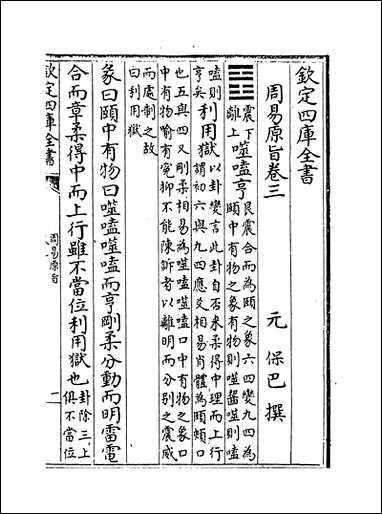 欽定四庫全書
周易原旨卷三
元 保巴 撰
䷔震下
離上
噬嗑亨
艮震合而為頤之象六四變九四為
頤中有物之象有物則噬齧噬則
嗑則
亨矣
利用獄
以卦變言此卦自否來柔得中理而上行
謂初六與九四應爻相易肖體為頤頰口
也五與四又剛柔相易為噬嗑噬嗑口中有物之象口
中有物喻有冤抑不能陳訴者以離明而分别之震威
而處制之故
曰利用獄
彖曰頤中有物曰噬嗑噬嗑而亨剛柔分動而明雷電
合而章柔得中而上行雖不當位利用獄也
卦除三上
俱不當位
欽定四庫全書
周易原旨